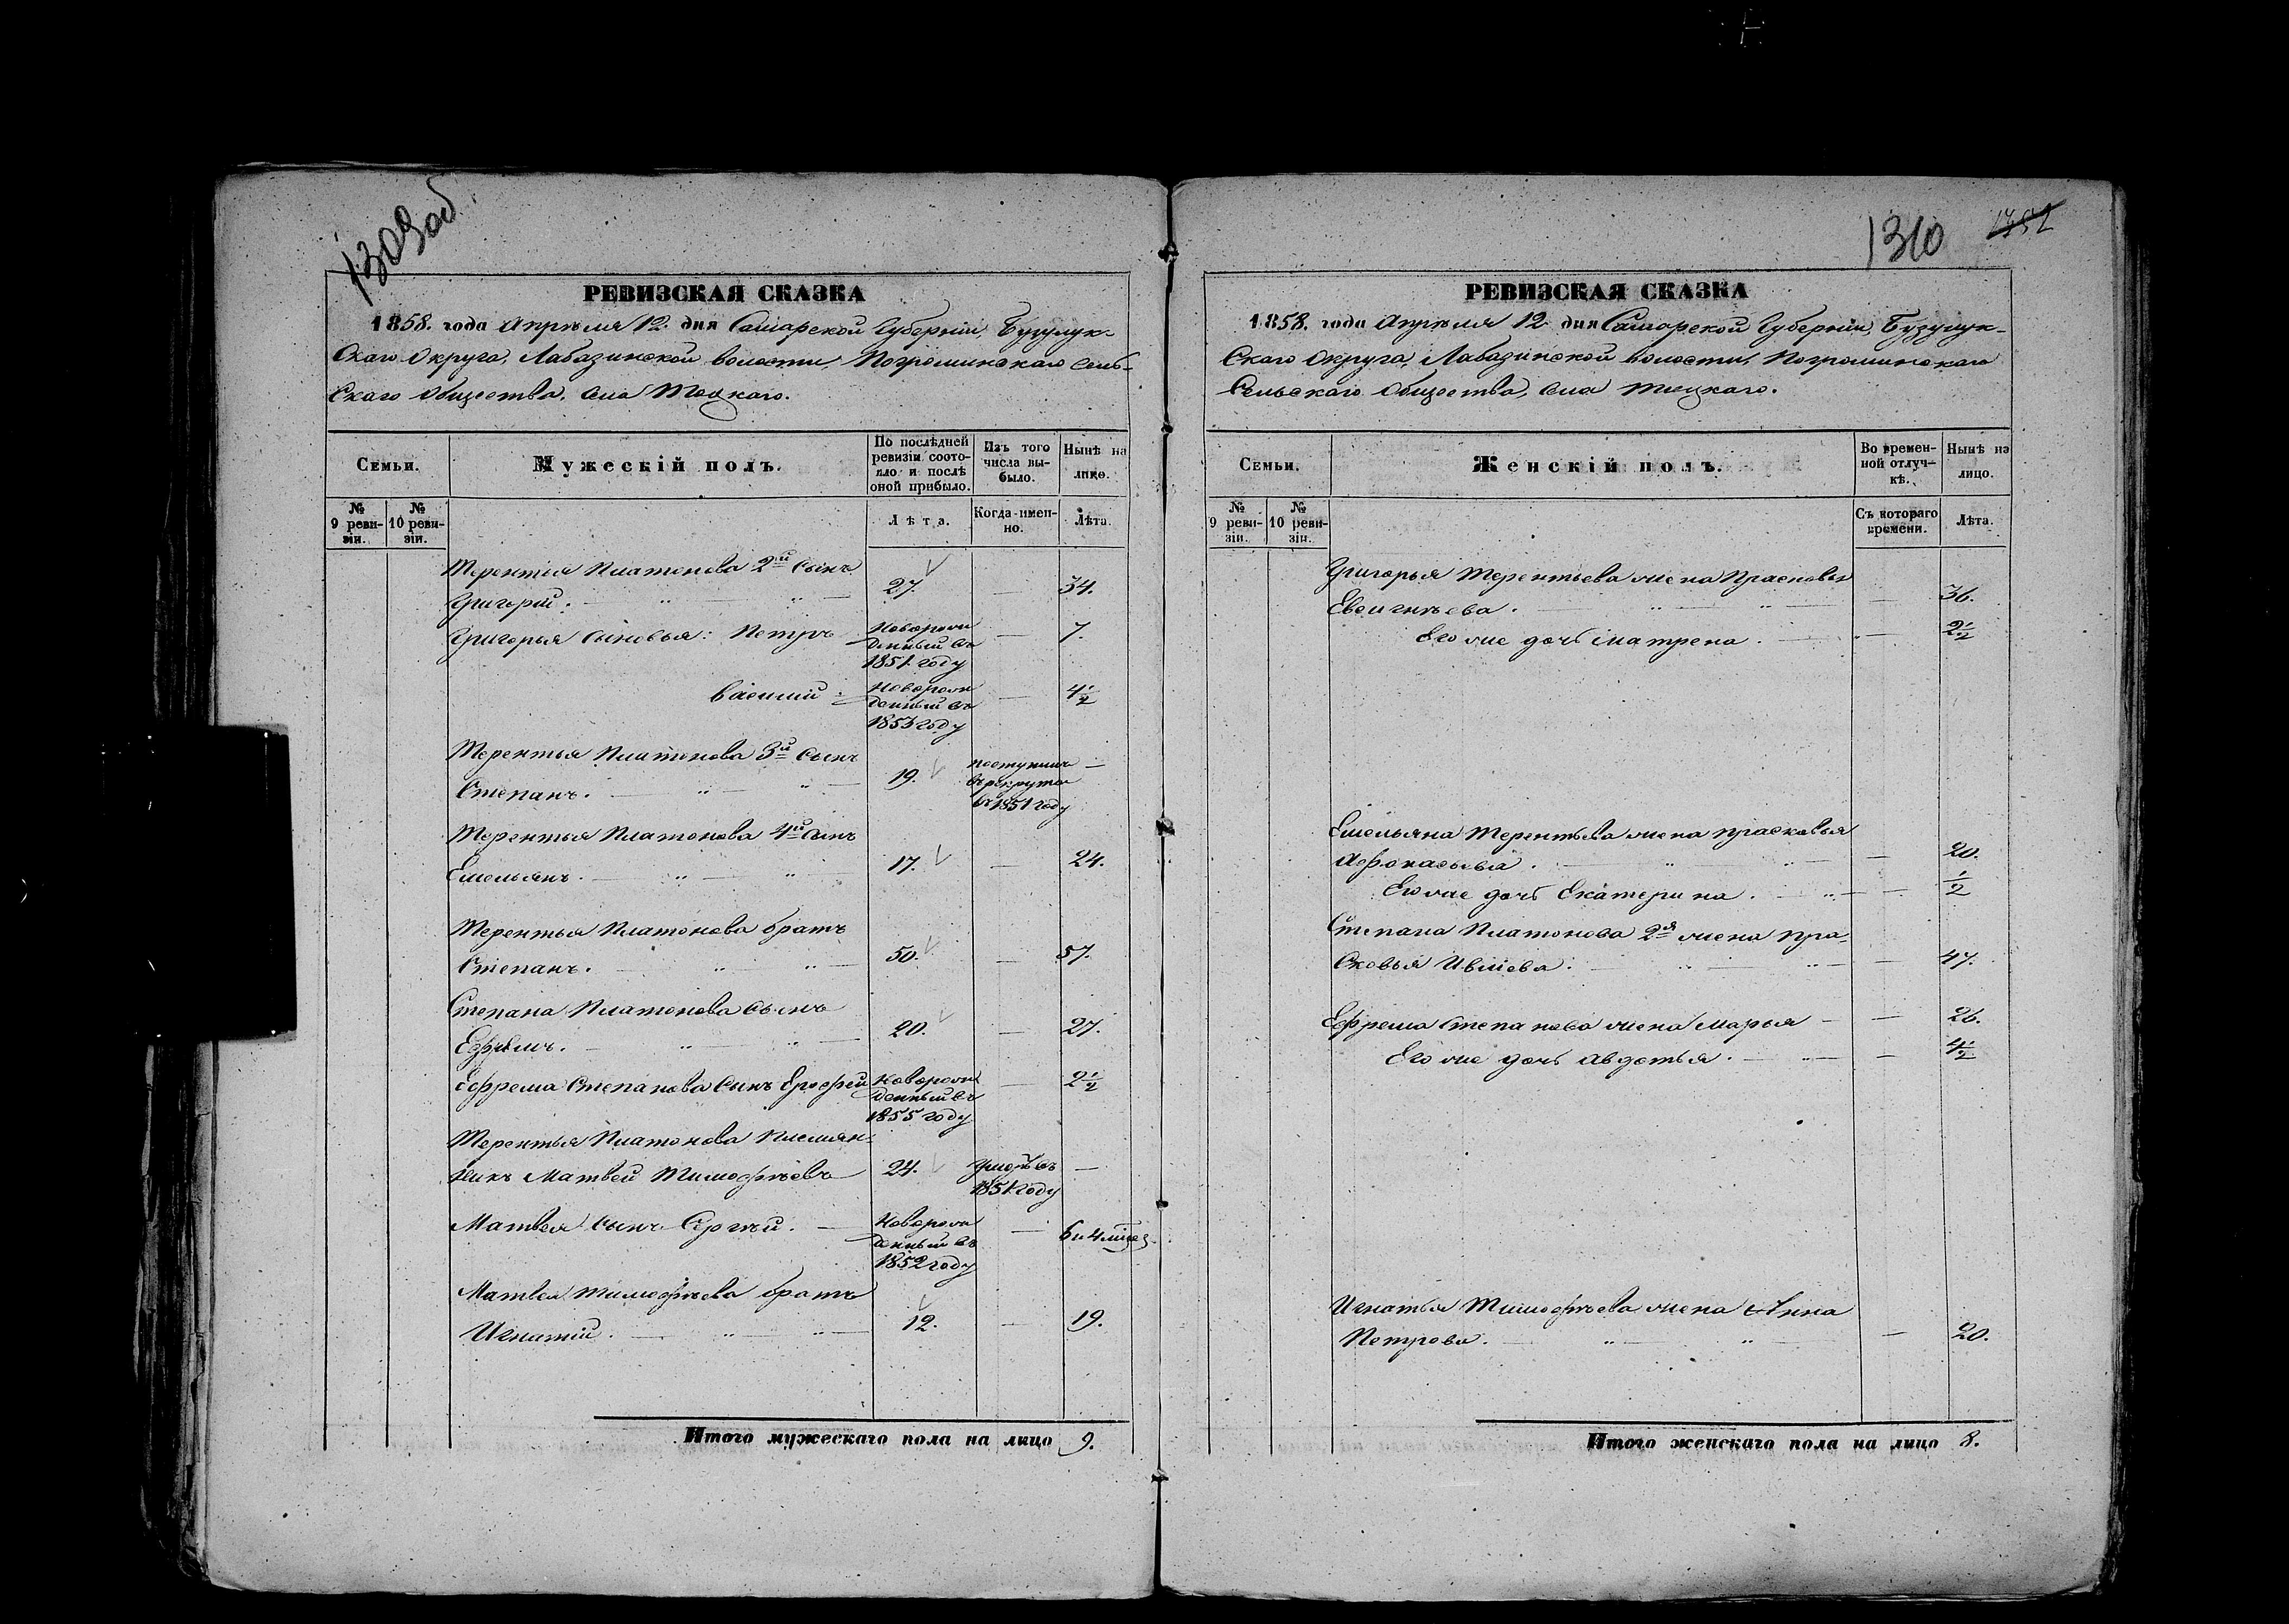 1309об
РЕВИЗСКАЯ СКАЗКА
1858. года Апрѣля 12. дня Самарской Губерніи, Бузулук-
скаго Округа, Лабазинской волости, Погроминскаго Сель-
скаго Общества, села Тоцкаго.
Семьи.
Мужескій полъ.
По послѣдней ревизіи состояло и послѣ оной прибыло.
Изъ того числа выбыло.
Нынѣ на лицо.
№ 9 ревизіи.
№ 10 ревизіи.
Лѣта.
Когда именно.
Лѣта.
Терентія Платонова 2й сынъ
Григорій. 27. — 34.
Григорья сыновья: Петръ Новорожденный въ 1851 году — 7.
Василій Новорожденный въ 1853 году — 4½
Терентья Платонова 3й сынъ
Степанъ. 19. поступилъ въ рекруты въ 1851 году —
Терентья Платонова 4й сынъ
Емельянъ. 17. — 24.
Терентья Платонова братъ
Степанъ. 50. — 57.
Степана Платонова сынъ
Ефремъ. 20. — 27.
Ефрема Степанова сынъ Ерофей Новорожденный въ 1855 году — 2½
Терентья Платонова племян-
никъ Матвей Тимофѣевъ 24. Умеръ въ 1851 году —
Матвея сынъ Сергѣй. Новорожденный въ 1852 году — 6 и 4 мѣсец
Матвея Тимофѣева братъ
Игнатій. 12. — 19.
Итого мужескаго пола на лицо 9.
1310
РЕВИЗСКАЯ СКАЗКА
1858. года Апрѣля 12 дня Самарской Губерніи, Бузулук-
скаго Округа, Лабазинской волости, Погроминскаго
Сельскаго Общества, села Тоцкаго.
Семьи.
Женскій полъ.
Во временной отлучкѣ.
Нынѣ на лицо.
№ 9 ревизіи.
№ 10 ревизіи.
Съ котораго времени.
Лѣта.
Григорья Терентьева жена Прасковья
Евсигнѣева. — 36.
Его же дочь Матрена. — 2½
Емельяна Терентьева жена Прасковья
Афонасьева. — 20.
Его же дочь Екатерина. — ½
Степана Платонова 2я жена Пра-
сковья Ивлiева. — 47.
Ефрема Степанова жена Марья — 26.
Его же дочь Авдотья. — 4½
Игнатья Тимофѣева жена Анна
Петрова. — 20.
Итого женскаго пола на лицо 8.